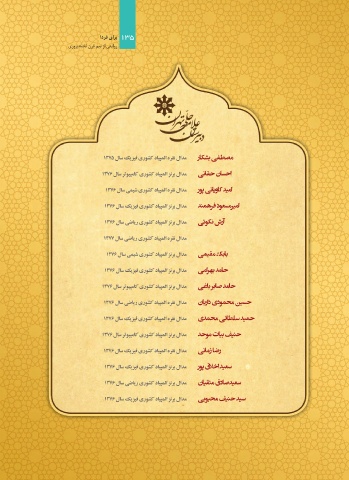 ۱۳۵
برای فردا
روایتی از نیم قرن نخبه پروری
دبیرستان علامه حلی تهران
مصطفی بشکار مدال نقره المپیاد کشوری فیزیک، سال ۱۳۷۵
احسان حقانی مدال برنز المپیاد کشوری کامپیوتر، سال ۱۳۷۶
امید کاویانی پور مدال نقره المپیاد کشوری شیمی، سال ۱۳۷۶
امیرمسعود فرهمند مدال نقره المپیاد کشوری فیزیک، سال ۱۳۷۶
آرش نکوئی مدال برنز المپیاد کشوری ریاضی، سال ۱۳۷۶
مدال نقره المپیاد کشوری ریاضی، سال ۱۳۷۷
بابک مقیمی مدال برنز المپیاد کشوری شیمی، سال ۱۳۷۶
حامد بهرامی مدال نقره المپیاد کشوری فیزیک، سال ۱۳۷۶
حامد صفرباغی مدال برنز المپیاد کشوری کامپیوتر، سال ۱۳۷۶
حسین محمودی داریان مدال نقره المپیاد کشوری ریاضی، سال ۱۳۷۶
حمید سلطانی محمدی مدال نقره المپیاد کشوری فیزیک، سال ۱۳۷۶
حنیف بیات موحد مدال برنز المپیاد کشوری کامپیوتر، سال ۱۳۷۶
رضا زمانی مدال نقره المپیاد کشوری فیزیک، سال ۱۳۷۶
سعید اخلاق پور مدال برنز المپیاد کشوری فیزیک، سال ۱۳۷۶
سعید صادق متقیان مدال برنز المپیاد کشوری ریاضی، سال ۱۳۷۶
سید حنیف محبوبی مدال نقره المپیاد کشوری فیزیک، سال ۱۳۷۶